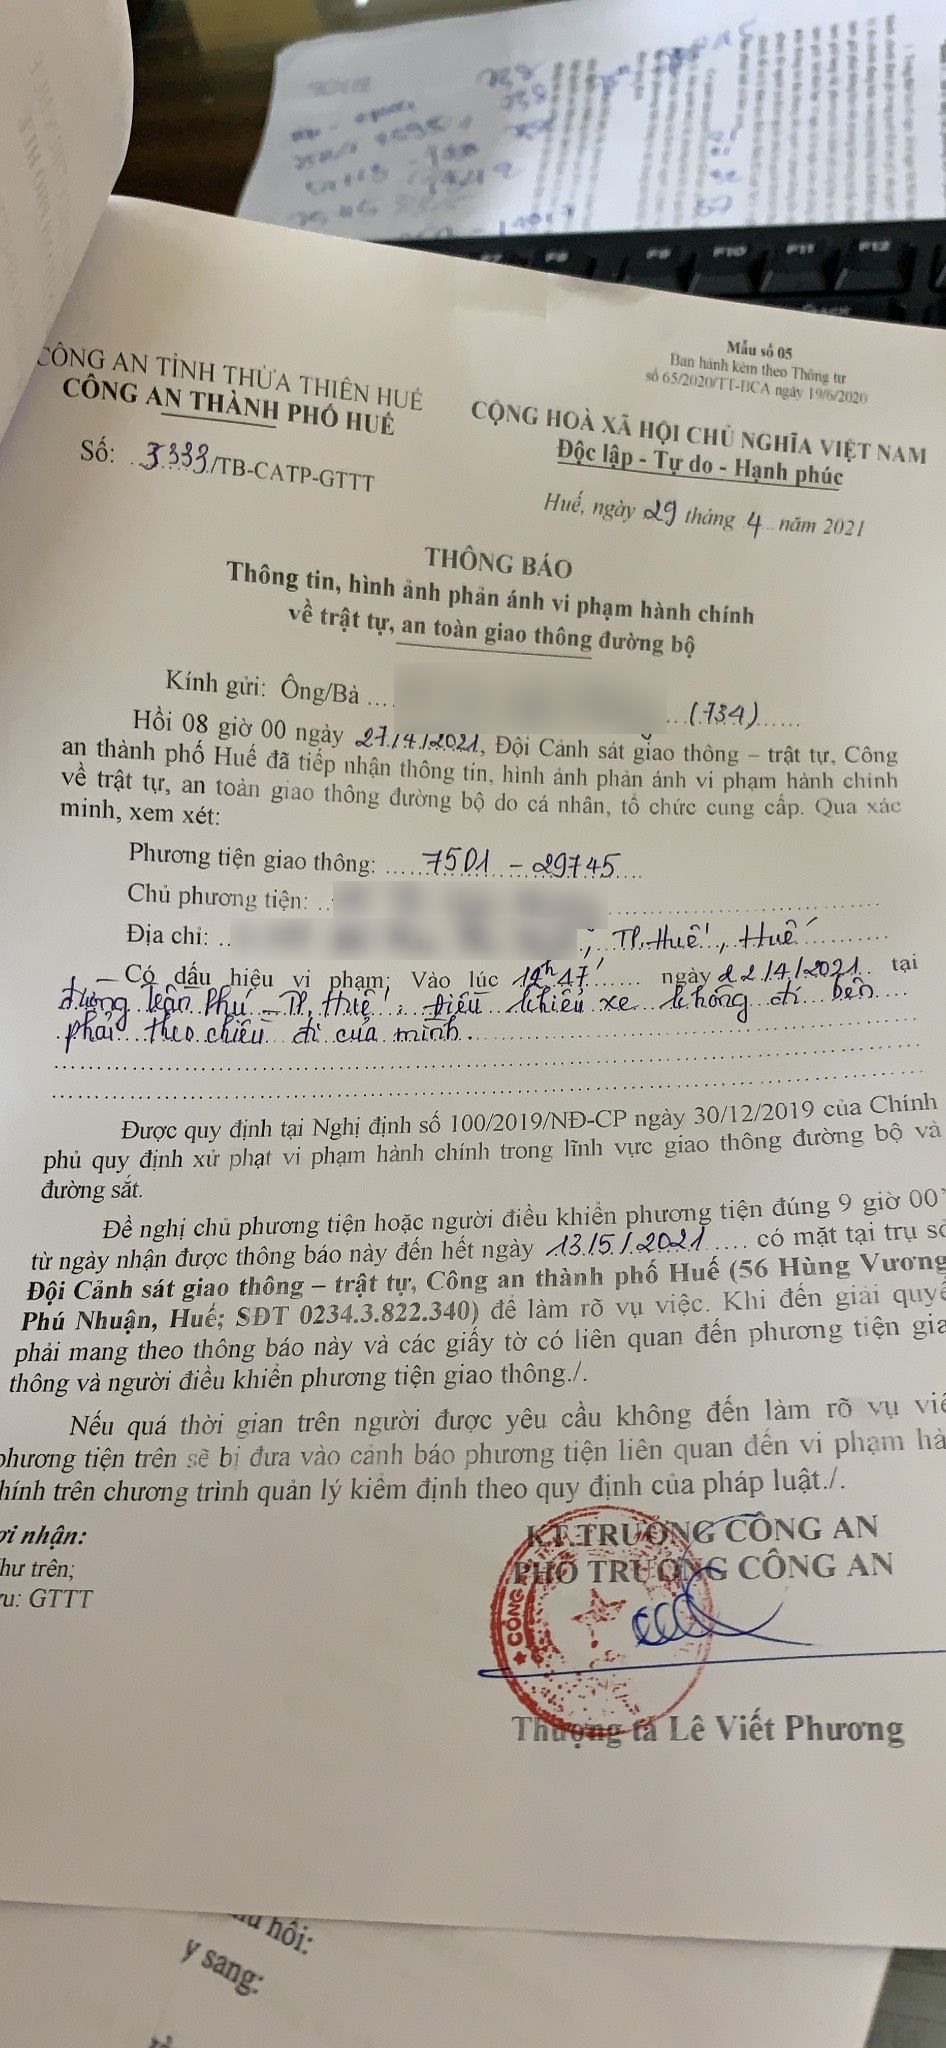 F9 F10 F11 F12
Mẫu số 05
Ban hành kèm theo Thông tư
số 65/2020/TT-BCA ngày 19/6/2020
CÔNG AN TỈNH THỪA THIÊN HUẾ
CÔNG AN THÀNH PHỐ HUẾ
CỘNG HOÀ XÃ HỘI CHỦ NGHĨA VIỆT NAM
Độc lập - Tự do - Hạnh phúc
Số: 3333/TB-CATP-GTTT
Huế, ngày 29 tháng 4 năm 2021
THÔNG BÁO
Thông tin, hình ảnh phản ánh vi phạm hành chính
về trật tự, an toàn giao thông đường bộ
Kính gửi: Ông/Bà ... (734)......
Hồi 08 giờ 00 ngày 27/4/2021, Đội Cảnh sát giao thông – trật tự, Công
an thành phố Huế đã tiếp nhận thông tin, hình ảnh phản ánh vi phạm hành chính
về trật tự, an toàn giao thông đường bộ do cá nhân, tổ chức cung cấp. Qua xác
minh, xem xét:
Phương tiện giao thông: ......7501 - 29745....
Chủ phương tiện: ..
Địa chỉ: .. , Tp. Huế, Huế
– Có dấu hiệu vi phạm: Vào lúc 12h17' ngày 22/4/2021 tại
đường Trần Phú - Tp. Huế: Điều khiển xe không đi bên
phải theo chiều đi của mình.
Được quy định tại Nghị định số 100/2019/NĐ-CP ngày 30/12/2019 của Chính
phủ quy định xử phạt vi phạm hành chính trong lĩnh vực giao thông đường bộ và
đường sắt.
Đề nghị chủ phương tiện hoặc người điều khiển phương tiện đúng 9 giờ 00'
từ ngày nhận được thông báo này đến hết ngày 13/5/2021 .... có mặt tại trụ sở
Đội Cảnh sát giao thông – trật tự, Công an thành phố Huế (56 Hùng Vương
Phú Nhuận, Huế; SĐT 0234.3.822.340) để làm rõ vụ việc. Khi đến giải quyế
phải mang theo thông báo này và các giấy tờ có liên quan đến phương tiện gia
thông và người điều khiển phương tiện giao thông./.
Nếu quá thời gian trên người được yêu cầu không đến làm rõ vụ việ
phương tiện trên sẽ bị đưa vào cảnh báo phương tiện liên quan đến vi phạm hà
hính trên chương trình quản lý kiểm định theo quy định của pháp luật./.
ơi nhận:
hư trên;
ưu: GTTT
KT.TRƯỞNG CÔNG AN
PHÓ TRƯỞNG CÔNG AN
CÔNG
Thượng tá Lê Viết Phương
hồi:
y sang: